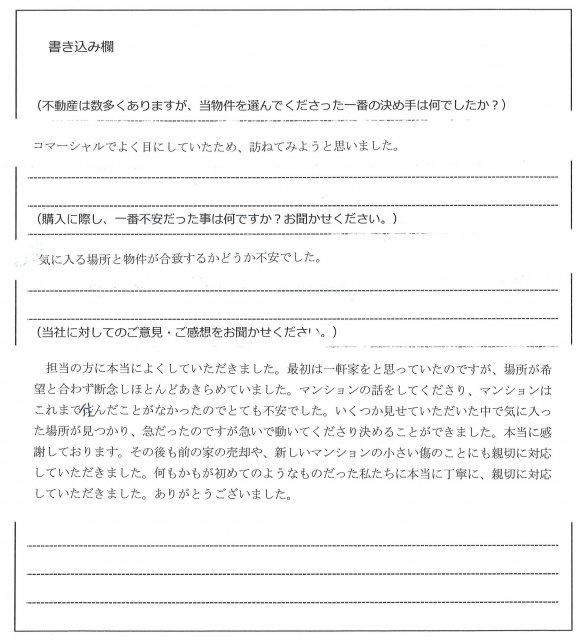 書き込み欄
（不動産は数多くありますが、当物件を選んでくださった一番の決め手は何でしたか？）
コマーシャルでよく目にしていたため、訪ねてみようと思いました。
（購入に際し、一番不安だった事は何ですか？お聞かせください。）
気に入る場所と物件が合致するかどうか不安でした。
（当社に対してのご意見・ご感想をお聞かせください。）
担当の方に本当によくしていただきました。最初は一軒家をと思っていたのですが、場所が希
望と合わず断念しほとんどあきらめていました。マンションの話をしてくださり、マンションは
これまで住んだことがなかったのでとても不安でした。いくつか見せていただいた中で気に入っ
た場所が見つかり、急だったのですが急いで動いてくださり決めることができました。本当に感
謝しております。その後も前の家の売却や、新しいマンションの小さい傷のことにも親切に対応
していただきました。何もかもが初めてのようなものだった私たちに本当に丁寧に、親切に対応
していただきました。ありがとうございました。